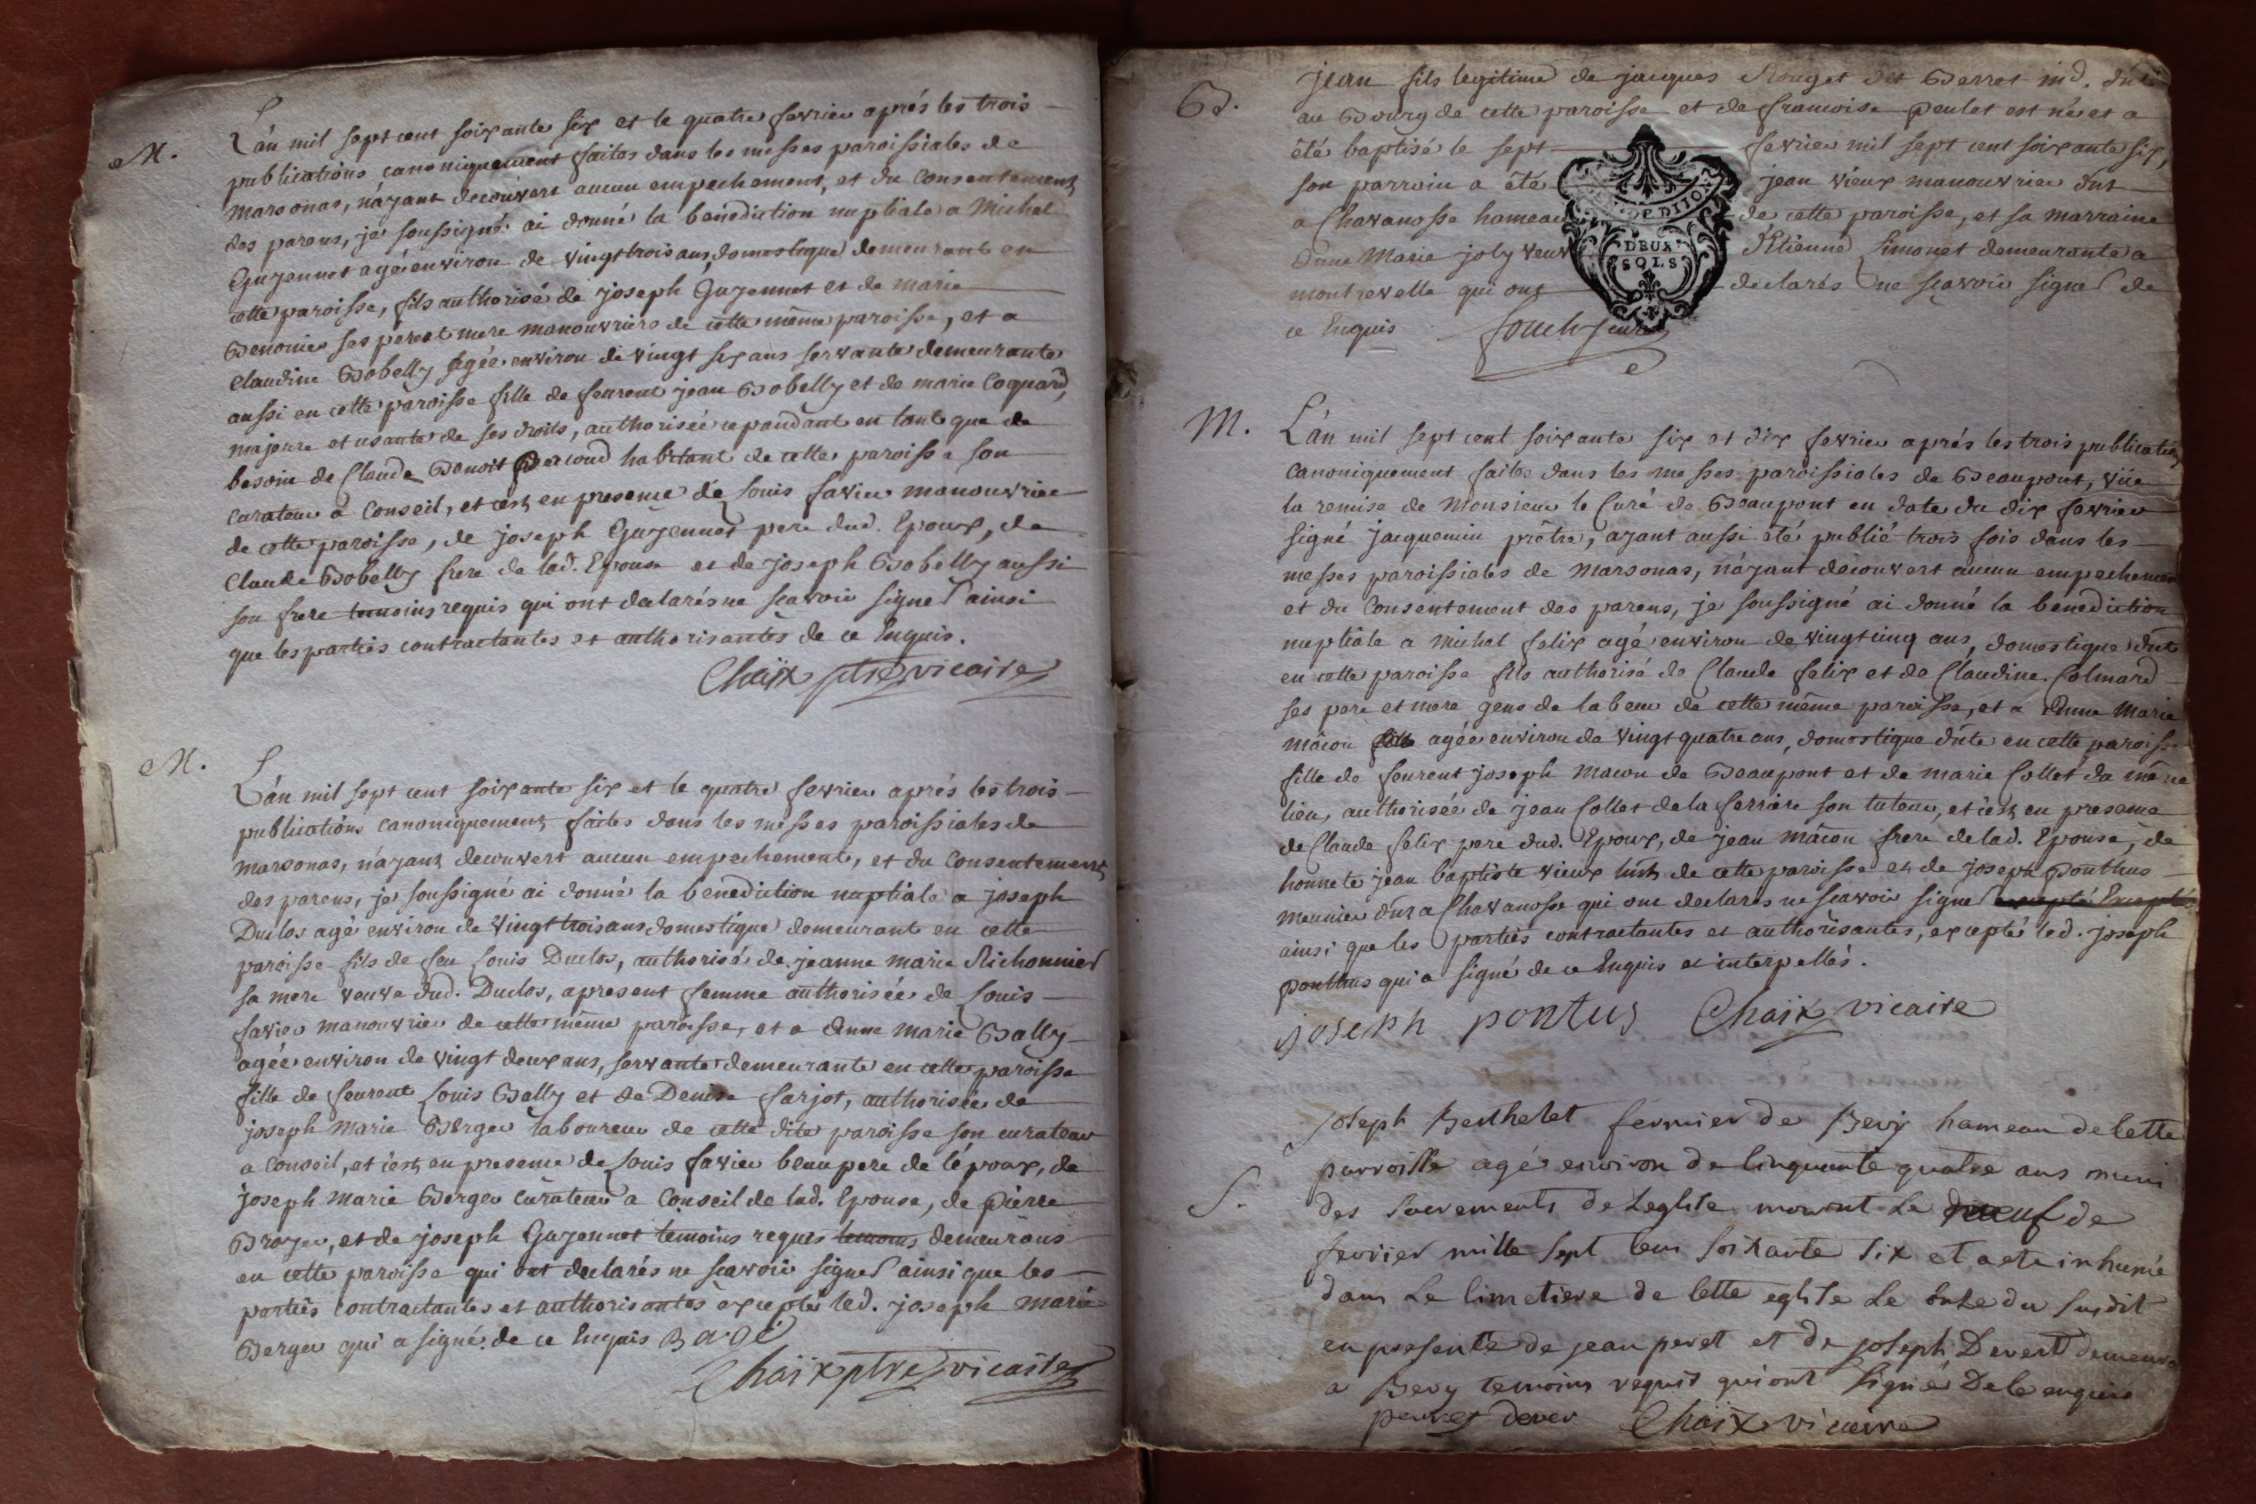 M.
L'an mil sept cent soixante six et le quatre fevrier aprés les trois
publications canoniquement faites dans les messes paroissiales de
marsonas, n'ayant decouvert aucun empechement, et du consentement
des parens, je soussigné ai donné la benediction nuptiale a Michel
Guyennet agé environ de vingt trois ans, domestique demeurant en
cette paroisse, fils authorisé de joseph Guyennet et de marie
Benonier ses pere et mere manouvriers de cette même paroisse, et a
Claudine Bobelly agée environ de vingt six ans servante demeurante
aussi en cette paroisse fille de feurent jean Bobelly et de marie Coquard,
majeure et usante de ses droits, authorisée cependant en tant que de
besoin de Claude Benoit habitant de cette paroisse son
curateur a conseil, et c'est en presence de Louis favier manouvrier
de cette paroisse, de joseph Guyennet pere dud. Epoux, de
Claude Bobelly frere de lad. Epouse et de joseph Bobelly aussi
son frere temoins requis qui ont declarés ne scavoir signer ainsi
que les parties contractantes et authorisantes de ce Enquis.
Chaix ptre vicaire
M.
L'an mil sept cent soixante six et le quatre fevrier aprés les trois
publications canoniquement faites dans les messes paroissiales de
marsonas, n'ayant decouvert aucun empechement, et du consentement
des parens, je soussigné ai donné la benediction nuptiale a joseph
Duclos agé environ de vingt trois ans domestique demeurant en cette
paroisse fils de feu Louis Duclos, authorisé de jeanne marie Richonnier
sa mere veuve dud. Duclos, apresent femme authorisée de Louis
favier manouvrier de cette même paroisse, et a Anne marie Bally
agée environ de vingt deux ans, servante demeurante en cette paroisse
fille de feurent Louis Bally et de Denise farjot, authorisée de
joseph marie Berger laboureur de cette dite paroisse son curateur
a conseil, et c'est en presence de Louis favier beau pere de l'époux, de
joseph marie Berger curateur a conseil de lad. Epouse, de pierre
Broyer, et de joseph Guyennet temoins requis temoins demeurans
en cette paroisse qui ont declarés ne scavoir signer ainsi que les
parties contractantes et authorisantes exceptés led. joseph marie
Berger qui a signé de ce Enquis
Chaix ptre vicaire
B.
jean fils legitime de jacques Rouget dit Berrot md. dt
au Bourg de cette paroisse et de francoise peulet est né et a
été baptisé le sept fevrier mil sept cent soixante six,
son parrain a été jean vieux manouvrier dnt
a Chavanosse hameau de cette paroisse, et sa marraine
Anne Marie joly veuve d'Etienne Simonet demeurante a
DE DIJON
DEUX
SOLS
montrevelle qui ont declarés ne scavoir signer de
ce Enquis
M.
L'an mil sept cent soixante six et dix fevrier aprés les trois publications
canoniquement faites dans les messes paroissiales de Beaupont, vüe
la remise de Monsieur le Curé de Beaupont en date du dix fevrier
signé jacquemin prêtre, ayant aussi été publié trois fois dans les
messes paroissiales de marsonas, n'ayant decouvert aucun empechement
et du consentement des parens, je soussigné ai donné la benediction
nuptiale a michel felix agé environ de vingt cinq ans, domestique dnt
en cette paroisse fils authorisé de Claude felix et de Claudine Colmard
ses pere et mere gens de labeur de cette même paroisse, et a Anne Marie
mâcon fille agée environ de vingt quatre ans, domestique dnte en cette paroisse
fille de feurent joseph macon de Beaupont et de marie Collet du même
lieu, authorisée de jean Collet de la ferriere son tuteur, et c'est en presence
de Claude felix pere dud. Epoux, de jean mâcon frere de lad. Epouse, de
honnete jean baptiste vieux de cette paroisse et de joseph Ponthus
meunier dnt a Chavanosse qui ont declarés ne scavoir signer
ainsi que les parties contractantes et authorisantes, exceptés led. joseph
ponthus qui a signé de ce Enquis et interpellés.
joseph pontus Chaix vicaire
S.
Joseph Berthelet fermier de Bevy hameau de cette
parroisse agé environ de cinquante quatre ans muni
des sacrements de leglise mourut le neuf de
fevrier mille sept cens soixante six et a ete inhumé
dans le cimetiere de cette eglise le onze du susdit
en presence de jean peret et de joseph Devert demeurant
a Bevy temoins requis qui ont signé De ce enquis
Chaix vicaire